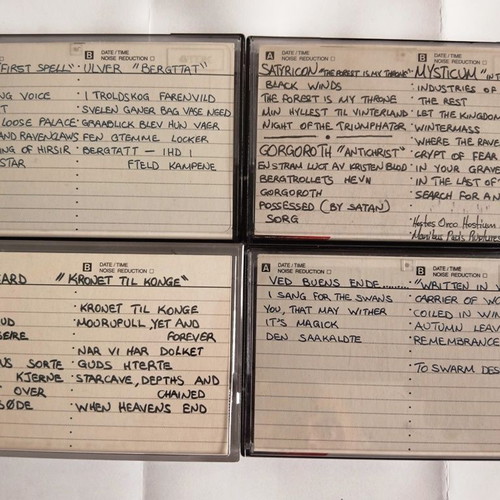 B DATE/TIME
NOISE REDUCTION
"FIRST SPELL" ULVER "BERGTTAT"
NG VOICE I TROLDSKOG FARENVILD
T SVELEN GANER BAG VASE NEED
LOOSE PALACE GRAABLICK BLEV HUN VAER
AND RAVENCLAWS FEN GTEMME LOCKER
NG OF HIRSIR BERGTATT - IHD I
STAR FTELD KAMPENE
A DATE/TIME
NOISE REDUCTION
B DATE/TIME
NOISE REDUCTION
SATYRICON "THE FOREST IS MY THRONE" MYSTICUM "IN T
BLACK WINDS INDUSTRIES OF
THE FOREST IS MY THRONE THE REST
MIN HYLLEST TIL VINTERLAND LET THE KINGDOM
NIGHT OF THE TRIUMPHATOR WINTERMASS
WHERE THE RAVE
GORGOROTH "ANTICHRIST" CRYPT OF FEAR
EN STRAM LUCT AV KRISTEN BLOD IN YOUR GRAVE
BERGTROLLETS HEVN IN THE LAST OF
GORGOROTH SEARCH FOR AN
POSSESSED (BY SATAN)
SORG Hostes Orco Hostium
B DATE/TIME
NOISE REDUCTION
EARD "KRONET TIL KONGE"
KRONET TIL KONGE
UD MOORUPULL, YET AND
SEIRE FOREVER
NAR VI HAR DOLKET
NS SORTE GUDS HTERTE
KJERNE STARCAVE, DEPTHS AND
OVER CHAINED
SØDE WHEN HEAVENS END
A DATE/TIME
NOISE REDUCTION
B DATE/TIME
NOISE REDUCTION
VED BUENS ENDE........ "WRITTEN IN W
I SANG FOR THE SWANS CARRIER OF WO
YOU, THAT MAY WITHER COILED IN WIN
IT'S MAGICK AUTUMN LEAV
DEN SAAKALDTE REMEMBRANCE
TO SWARM DES